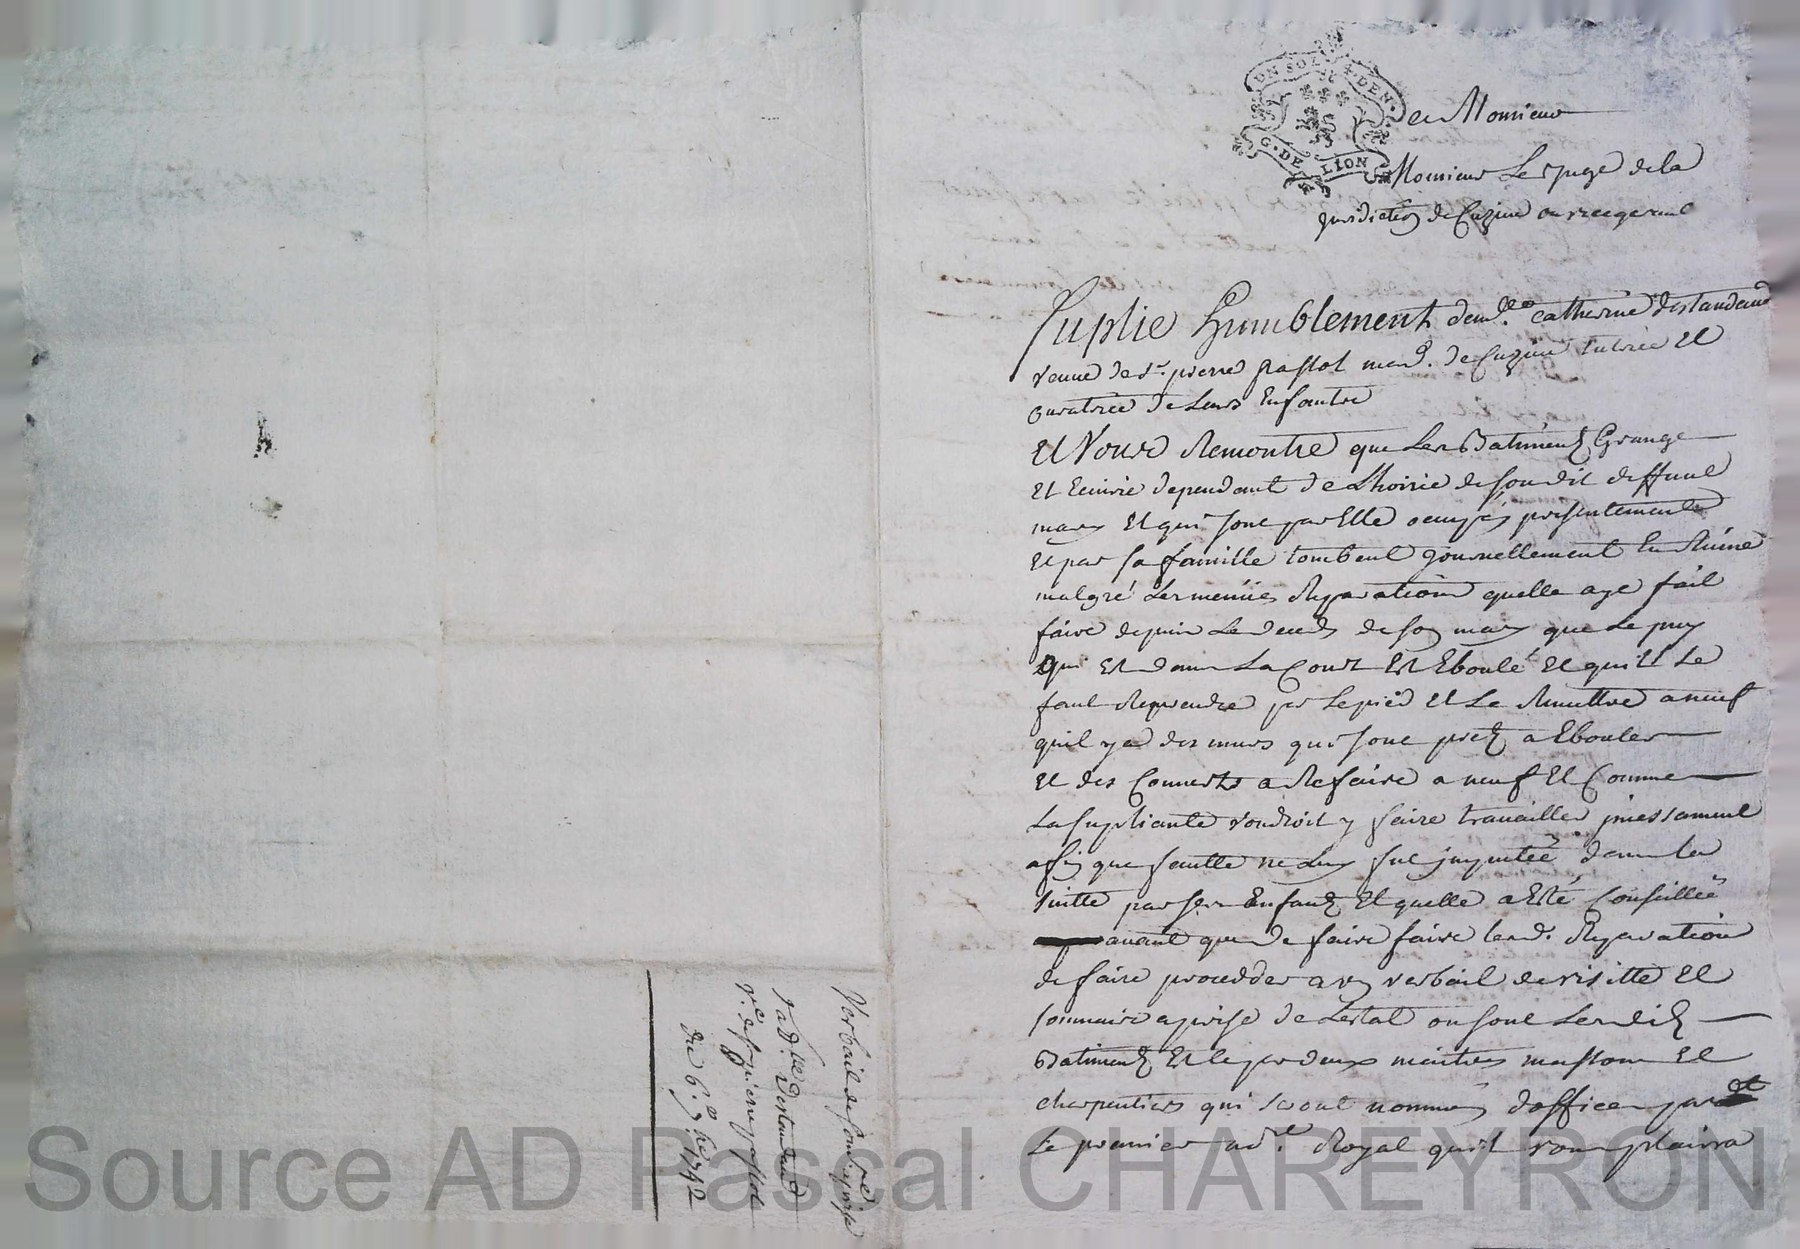 UN SOL 4 DEN.
G. DE LION
A Monsieur
Monsieur Le Juge de la
Juridiction de Cuzieu ou
Suplie humblement demlle catherine destandaud
veuve de sr. pierre passot mard. de Cuzieu tutrice et
curatrice de Leurs Enfantz
Et Vous Remontre que Les Batiments Grange
Et Ecurie dependant de Lhoirie de son dit deffunt
mary Et qui sont par Elle ocupés presentement
et par sa famille tombent journellement En Ruine
malgré Les menües Reparations quelle aye fait
faire depuis Le deceds de son mary que Le puy
qui est dans La Court Est Eboulé et quil Le
faut Reprendre par Le pied Et Le Remettre a neuf
quil y a des murs qui sont pretz a Ebouler
et des Couverts a Refaire a neuf Et Comme
La supliante voudroit y faire travailler jncessament
afin que fautte ne Luy fut jmputée dans La
suitte par ses Enfantz Et quelle a Esté Conseillée
avant que de faire faire lesd. Reparations
de faire procedder a un verbail de visitte Et
sommaire aprise de Lestat ou sont Lesditz
Batimentz Et ce par deux maitres massons Et
charpentiers qui seront nommés doffice par dt
Le premier Royal quil vous plaira
Verbail de somre. aprise
pr. dlle. Destandaud
ve. de sr. pierre passot
du 6e. 7bre 1742
Source AD Pascal CHAREYRON